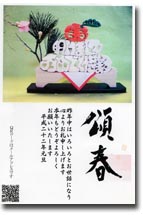 頌春
昨年中はいろいろとお世話になり
心よりお礼申し上げます
本年もどうぞよろしく
お願いいたします
平成二十二年元旦